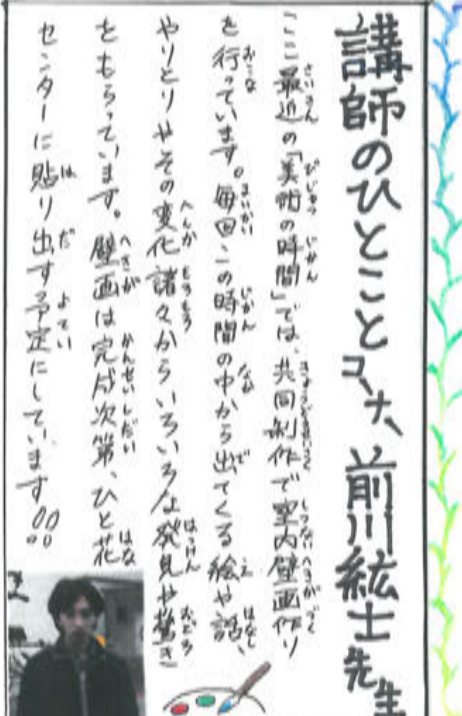 講師のひとことコーナー 前川紘士先生
「ここ最近の「美術の時間」では、共同制作で室内壁画作り
を行っています。毎回この時間の中から出てくる絵や話、
やりとりやその変化諸々からいろいろな発見や驚き
をもらっています。壁画は完成次第、ひと花
センターに貼り出す予定にしています!!